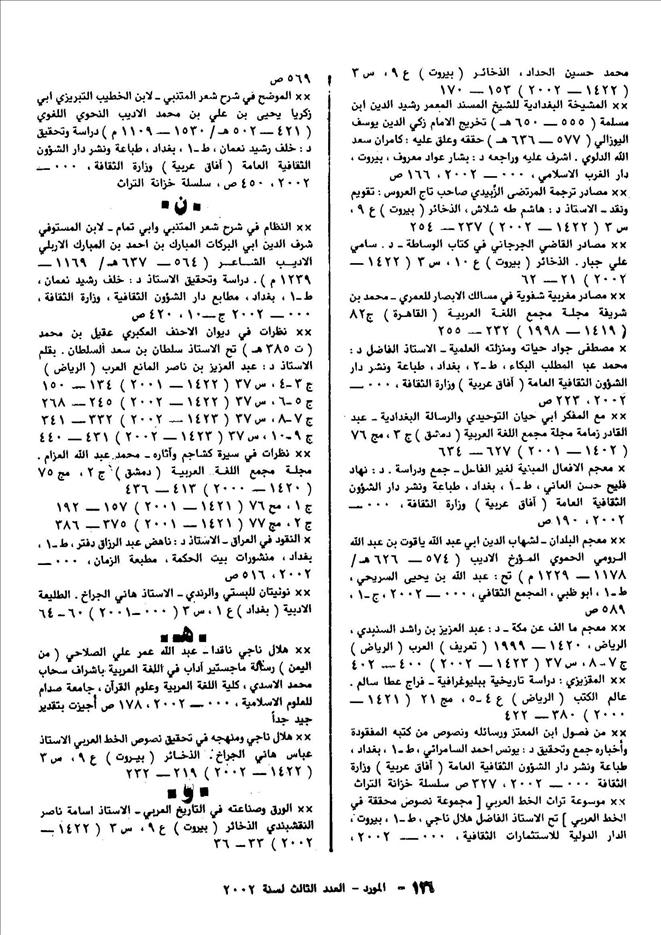 محمد حسين الحداد، الذخائر ( بيروت ) ع ٩، س ٣
( ١٤٢٢ — ٢٠٠٢ ) ١٥٣ — ١٧٠
×× المشيخة البغدادية للشيخ المسند المعمر رشيد الدين ابن
مسلمة ( ٥٥٥ — ٦٥٠ هـ ) تخريج الامام زكي الدين يوسف
اليوزالي ( ٥٧٧ — ٦٣٦ هـ ) حققه وعلق عليه : كامران سعد
الله الدلوي . اشرف عليه وراجعه د : بشار عواد معروف ، بيروت ،
دار الغرب الاسلامي ، ٠٠٠ — ٢٠٠٢ ، ١٦٦ ص
×× مصادر ترجمة المرتضى الزَّبيدي صاحب تاج العروس : تقويم
ونقد – الاستاذ د : هاشم طه شلاش ، الذخائر ( بيروت ) ع ٩ ،
س ٣ ( ١٤٢٢ — ٢٠٠٢ ) ٢٣٧ — ٢٥٤
×× مصادر القاضي الجرجاني في كتاب الوساطة – د . سامي
علي جبار . الذخائر ( بيروت ) ع ١٠ ، س ٣ ( ١٤٢٢ —
٢٠٠٢ ) ٢١ — ٦٢
×× مصادر مغربية شفوية في مسالك الابصار للعمري – محمد بن
شريفة مجلة مجمع اللغة العربية ( القاهرة ) ج ٨٢
( ١٤١٩ — ١٩٩٨ ) ٢٣٢ — ٢٥٥
× مصطفى جواد حياته ومنزلته العلمية – الاستاذ الفاضل د :
محمد عبد المطلب البكاء ، ط–٢ ، بغداد ، طباعة ونشر دار
الشؤون الثقافية العامة ( آفاق عربية ) وزارة الثقافة ، ٠٠٠ —
٢٠٠٢ ، ٢٢٣ ص
×× مع المفكر ابي حيان التوحيدي والرسالة البغدادية – عبد
القادر زمامة مجلة مجمع اللغة العربية ( دمشق ) ج ٣ ، مج ٧٦
( ١٤٠٢ — ٢٠٠١ ) ٦٢٧ — ٦٣٤
× معجم الافعال المبنية لغير الفاعل – جمع ودراسة . د : نهاد
فليح حسن العاني ، ط–١ ، بغداد ، طباعة ونشر دار الشؤون
الثقافية العامة ( آفاق عربية ) وزارة الثقافة ، ٠٠٠ —
٢٠٠٢ ، ١٩٠ ص
×× معجم البلدان – لشهاب الدين ابي عبد الله ياقوت بن عبد الله
الرومي الحموي المؤرخ الاديب ( ٥٧٤ — ٦٢٦ هـ /
١١٧٨ — ١٢٢٩ م ) تح : عبد الله بن يحيى السريحي ،
ط–١ ، ابو ظبي ، المجمع الثقافي ، ٠٠٠ — ٢٠٠٢ ، ج–١ ،
٥٨٩ ص
×× معجم ما الف عن مكة – د : عبد العزيز بن راشد السنيدي ،
الرياض ، ١٤٢٠ — ١٩٩٩ ( تعريف ) العرب ( الرياض )
ج ٧–٨ ، س ٣٧ ( ١٤٢٣ — ٢٠٠٢ ) ٤٠٠ — ٤٠٢
×× المقريزي : دراسة تاريخية ببليوغرافية – فراج عطا سالم .
عالم الكتب ( الرياض ) ع ٤–٥ ، مج ٢١ ( ١٤٢١ —
٢٠٠٠ ) ٣٨٠ — ٤٢٢
×× من فصول ابن المعتز ورسائله ونصوص من كتبه المفقودة
وأخباره جمع وتحقيق د : يونس احمد السامرائي ، ط–١ ، بغداد ،
طباعة ونشر دار الشؤون الثقافية العامة ( آفاق عربية ) وزارة
الثقافة ٠٠٠ — ٢٠٠٢ ، ٣٢٧ ص سلسلة خزانة التراث
×× موسوعة تراث الخط العربي [ مجموعة نصوص محققة في
الخط العربي ] تح الاستاذ الفاضل هلال ناجي ، ط–١ ، بيروت ،
الدار الدولية للاستثمارات الثقافية ، ٠٠٠ — ٢٠٠٢ ،
٥٦٩ ص
×× الموضح في شرح شعر المتنبي – لابن الخطيب التبريزي ابي
زكريا يحيى بن علي بن محمد الاديب النحوي اللغوي
( ٤٢١ — ٥٠٢ هـ / ١٥٣٠ — ١١٠٩ م ) دراسة وتحقيق
د : خلف رشيد نعمان ، ط–١ ، بغداد ، طباعة ونشر دار الشؤون
الثقافية العامة ( آفاق عربية ) وزارة الثقافة ، ٠٠٠ —
٢٠٠٢ ، ٤٥٠ ص ، سلسلة خزانة التراث
ن
×× النظام في شرح شعر المتنبي وابي تمام – لابن المستوفي
شرف الدين ابي البركات المبارك بن احمد بن المبارك الاربلي
الاديب الشاعر ( ٥٦٤ — ٦٣٧ هـ / ١١٦٩ —
١٢٣٩ م ) . دراسة وتحقيق الاستاذ د : خلف رشيد نعمان ،
ط–١ ، بغداد ، مطابع دار الشؤون الثقافية ، وزارة الثقافة ،
٠٠٠ — ٢٠٠٢ ج–١٠ ، ٤٢٠ ص
×× نظرات في ديوان الاحنف العكبري عقيل بن محمد
( ت ٣٨٥ هـ ) تح الاستاذ سلطان بن سعد السلطان . بقلم
الاستاذ د : عبد العزيز بن ناصر المانع العرب ( الرياض )
ج ٣–٤ ، س ٣٧ ( ١٤٢٢ — ٢٠٠١ ) ١٣٤ — ١٥٠
ج ٥–٦ ، س ٣٧ ( ١٤٢٢ — ٢٠٠٢ ) ٢٤٥ — ٢٦٨
ج ٧–٨ ، س ٣٧ ( ١٤٢٣ — ٢٠٠٢ ) ٣٣٢ — ٣٤١
ج ٩–١٠ ، س ٣٧ ( ١٤٢٣ — ٢٠٠٢ ) ٤٣١ — ٤٤٠
×× نظرات في سيرة كشاجم وآثاره – محمد عبد الله العزام .
مجلة مجمع اللغة العربية ( دمشق ) ج ٢ ، مج ٧٥
( ١٤٢٠ — ٢٠٠٠ ) ٤١٣ — ٤٣٦
ج ١ ، مج ٧٦ ( ١٤٢١ — ٢٠٠١ ) ١٥٧ — ١٩٢
ج ٢ ، مج ٧٧ ( ١٤٢١ — ٢٠٠١ ) ٣٧٥ — ٣٨٦
× النقود في العراق – الاستاذ د : ناهض عبد الرزاق دفتر ، ط–١ ،
بغداد ، منشورات بيت الحكمة ، مطبعة الزمان ، ٠٠٠ —
٢٠٠٢ ، ٥١٦ ص
×× نونيتان للبستي والرندي – الاستاذ هاني الجراخ . الطليعة
الادبية ( بغداد ) ع ١ ، س ٣ ( ٠٠٠ — ٢٠٠١ ) ٦٠–٦٤
هـ
×× هلال ناجي ناقدا – عبد الله عمر علي الصلاحي ( من
اليمن ) رسالة ماجستير آداب في اللغة العربية باشراف سحاب
محمد الاسدي ، كلية اللغة العربية وعلوم القرآن ، جامعة صدام
للعلوم الاسلامية ، ٠٠٠ — ٢٠٠٢ ، ١٧٨ ص أجيزت بتقدير
جيد جداً
×× هلال ناجي ومنهجه في تحقيق نصوص الخط العربي الاستاذ
عباس هاني الجراخ . الذخائر ( بيروت ) ع ٩ ، س ٣
( ١٤٢٢ — ٢٠٠٢ ) ٢١٩ — ٢٣٢
و
×× الورق وصناعته في التاريخ العربي – الاستاذ اسامة ناصر
النقشبندي الذخائر ( بيروت ) ع ٩ ، س ٣ ( ١٤٢٢ —
٢٠٠٢ ) ٣٣ — ٣٦
١٣٦ – المورد – العدد الثالث لسنة ٢٠٠٢